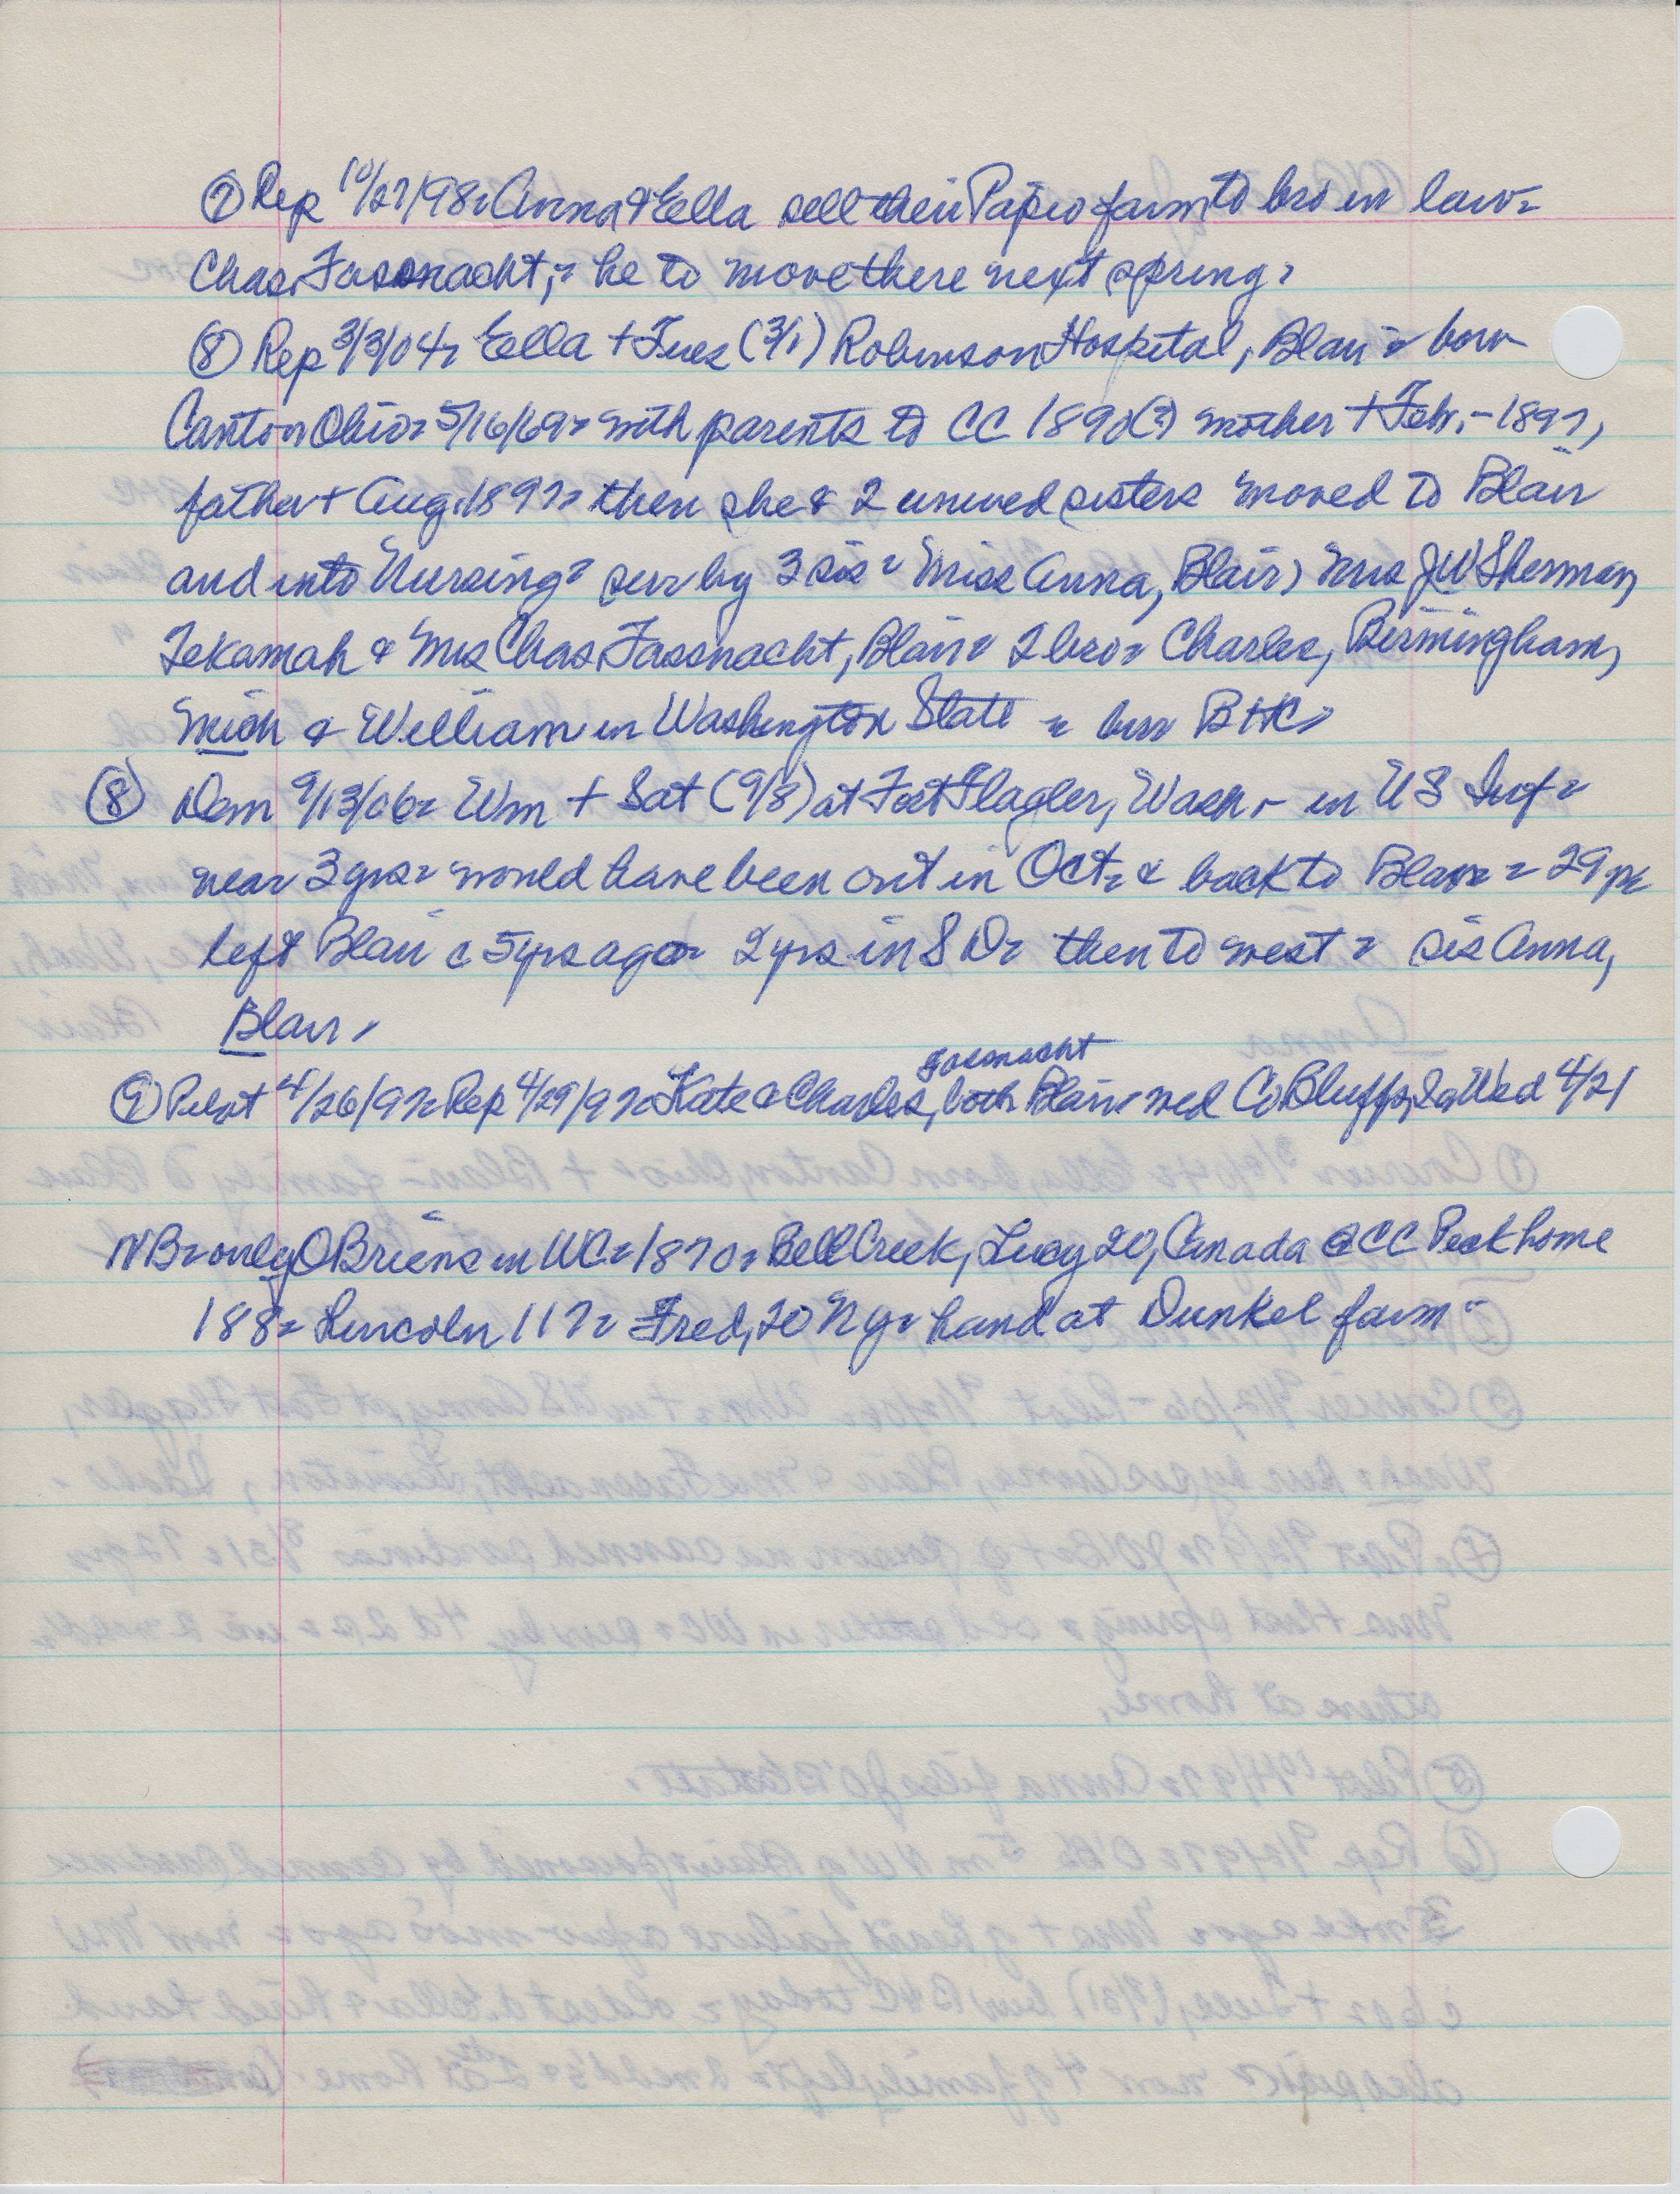 ⑦ Rep 10/27/98= Anna & Ella sell their Papio farm to bro in law=
Chas. Fassnacht,= he to move there next spring=
⑧ Rep 3/3/04= Ella + Tues (3/1) Robinson Hospital, Blair = born
Canton Ohio= 5/16/69= with parents to CC 1890(?) mother + Febr.- 1897,
father + Aug. 1897= then she & 2 unwed sisters moved to Blair
and into Nursing= surv by 3 sis = Miss Anna, Blair, Mrs JW Sherman,
Tekamah & Mrs Chas Fassnacht, Blair= 2 bro= Charles, Birmingham,
Mich & William in Washington State = bur BHC=
⑧ Dem 9/13/06= Wm + Sat (9/8) at Fort Flagler, Wash.- in US Inf=
near 3 yrs= would have been out in Oct= & back to Blair = 29
left Blair c 5 yrs ago= 2 yrs in S D= then to west = sis Anna,
Blair=
Fassnacht
⑨ Pilot 4/26/97= Rep 4/29/97= Kate & Charles, both Blair= wed Co Bluffs, Ia Wed 4/21
NB= only OBriens in WC= 1870= Bell Creek, Lucy 20, Canada @ CC Peck home
188= Lincoln 117= Fred, 20 NY= hand at Dunkel farm=